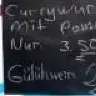 Currywur
mit Pom
Nur 3,50
Glühwein 2